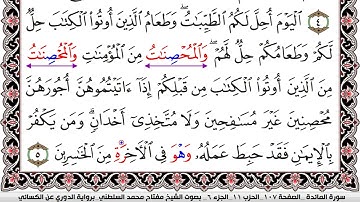 ٤ الْيَوْمَ أُحِلَّ لَكُمُ الطَّيِّبَٰتُ ۖ وَطَعَامُ الَّذِينَ أُوتُوا۟ الْكِتَٰبَ حِلٌّ
لَكُمْ وَطَعَامُكُمْ حِلٌّ لَّهُمْ ۖ وَالْمُحْصِنَٰتُ مِنَ الْمُؤْمِنَٰتِ وَالْمُحْصِنَٰتُ
مِنَ الَّذِينَ أُوتُوا۟ الْكِتَٰبَ مِن قَبْلِكُمْ إِذَآ ءَاتَيْتُمُوهُنَّ أُجُورَهُنَّ
مُحْصِنِينَ غَيْرَ مُسَٰفِحِينَ وَلَا مُتَّخِذِىٓ أَخْدَانٍ ۗ وَمَن يَكْفُرْ
بِالْإِيمَٰنِ فَقَدْ حَبِطَ عَمَلُهُۥ وَهْوَ فِى الْأَخِرَةِ مِنَ الْخَٰسِرِينَ ٥
سورة المائدة . الصفحة ١٠٧ الحزب ١١ الجزء ٦ . بصوت الشيخ مفتاح محمد السلطني . برواية الدوري عن الكسائي